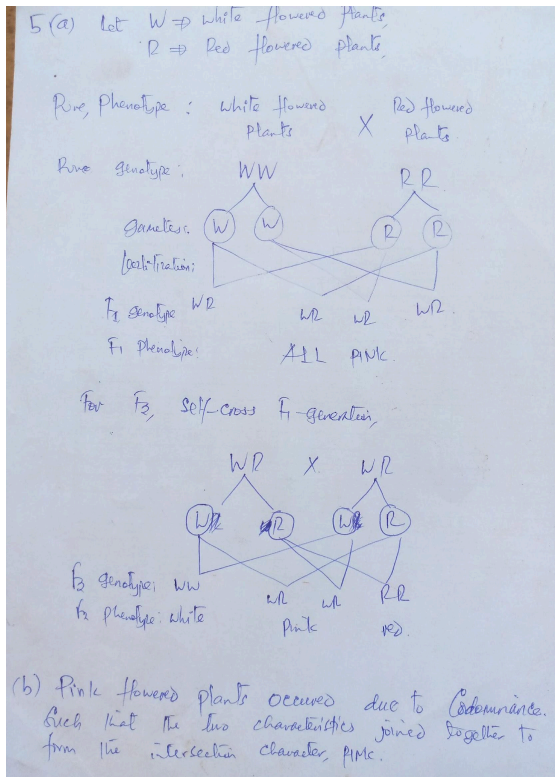 5 (a) Let W ⇒ White flowered plants,
R ⇒ Red flowered plants,
Pure, Phenotype : White flowered plants X Red flowered plants.
Pure genotype : WW RR
gametes : W W R R
F1 genotype WR WR WR WR
F1 Phenotype : ALL PINK.
For F2, Self-cross F1-generation,
WR X WR
W R W R
F2 genotype : WW WR WR RR
F2 phenotype : White Pink red.
(b) Pink flowered plants occured due to Codominance.
Such that the two characteristics joined together to
form the intersection character, PINK.